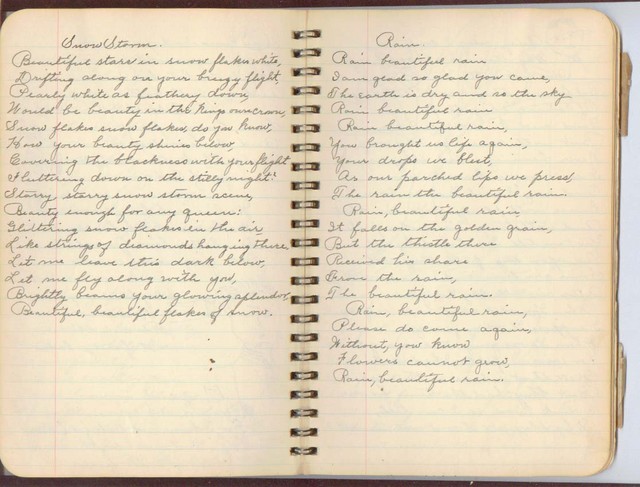 Snow Storm.
Beautiful stars in snow flakes white,
Drifting along on your breezy flight,
Pearly white as feathery down,
Would be beauty in the kings own crown,
Snow flakes snow flakes, do you know,
How your beauty shines below,
Covering the blackness with your flight
Fluttering down on the stilly night.
Starry, starry snow storm scene,
Beauty enough for any queen:
Glittering snow flakes in the air
Like strings of diamonds hanging there.
Let me leave this dark below,
Let me fly along with you,
Brightly beams your glowing splendor
Beautiful, beautiful flakes of snow.
Rain.
Rain beautiful rain
I am glad so glad you came,
The earth is dry and so the sky
Rain beautiful rain
Rain beautiful rain,
You brought us life again,
Your drops we blest,
As our parched lips we press,
The rain the beautiful rain.
Rain, beautiful rain,
It falls on the golden grain,
But the thistle there
Received his share
From the rain,
The beautiful rain.
Rain, beautiful rain,
Please do come again,
Without, you know
Flowers cannot grow,
Rain, beautiful rain.